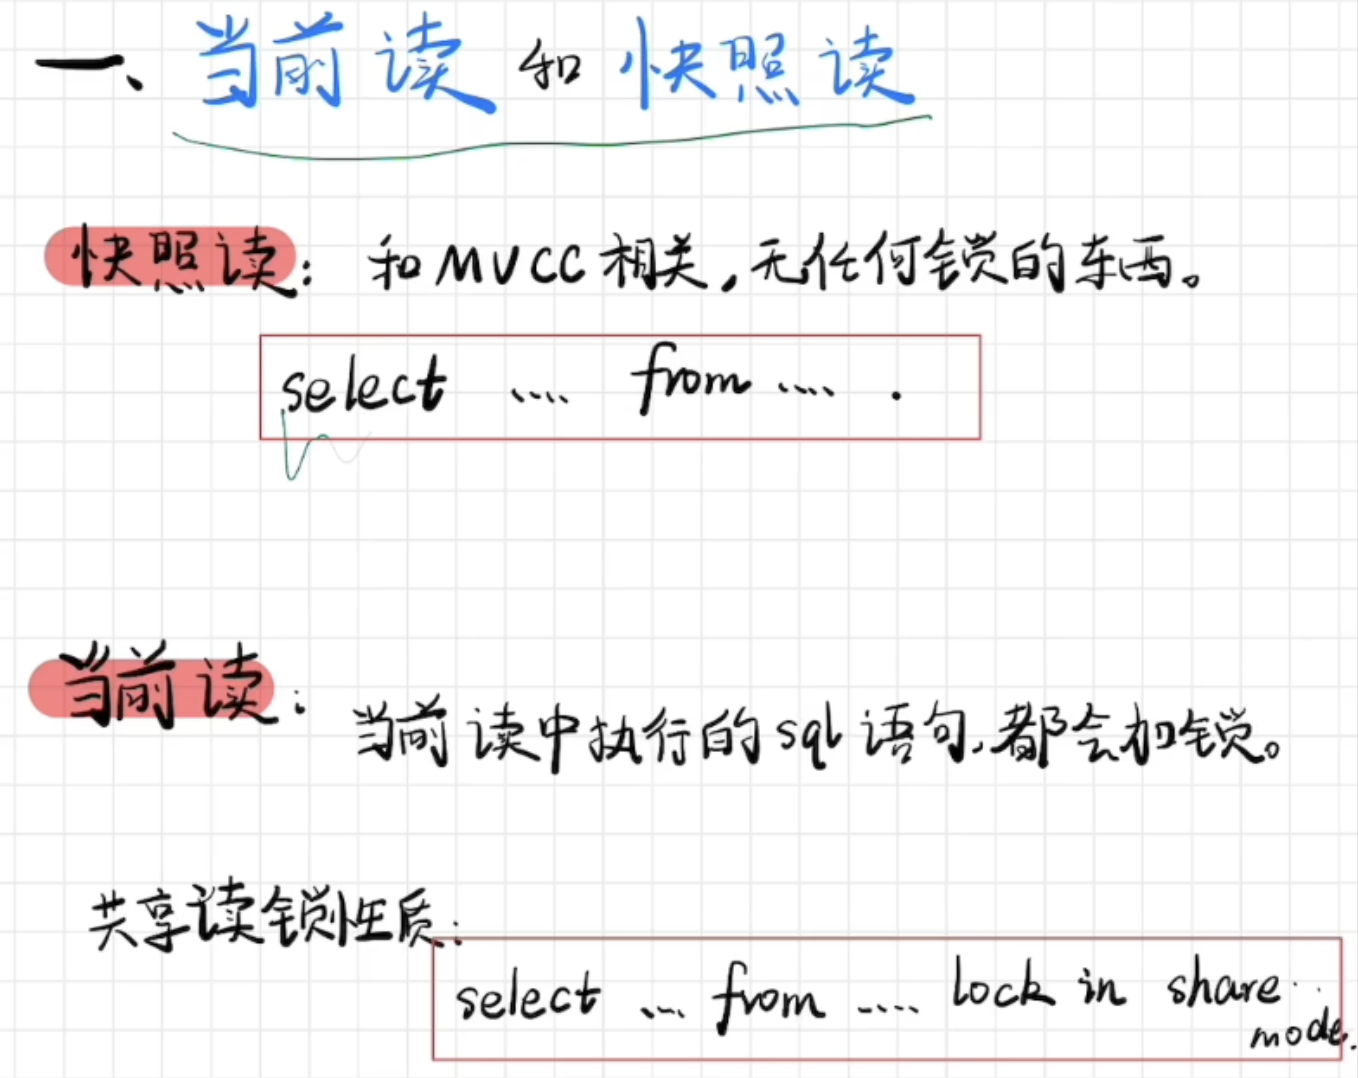 一、当前读 和 快照读
快照读： 和MVCC相关,无任何锁的东西。
select .... from .... .
当前读： 当前读中执行的sql语句,都会加锁。
共享读锁性质：
select .... from .... lock in share
mode.